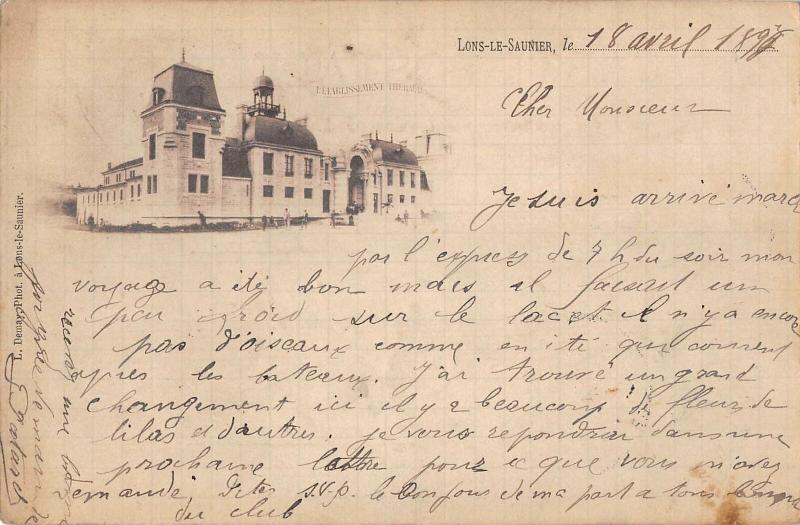 LONS-LE-SAUNIER, le 18 avril 189
L'ETABLISSEMENT THERMAL
Cher Monsieur
Je suis arrivé mardi
par l'express de 7 h du soir mon
voyage a été bon mais il faisait un
peu froid sur le lac et il n'y a encore
pas d'oiseaux comme en été qui courent
apres les bateaux. J'ai trouvé un grand
changement ici il y a beaucoup de fleurs de
lilas et d'autres. je vous repondrai dans une
prochaine lettre pour ce que vous m'avez
demandé, Dites s.v.p. le bonjour de ma part a tous
du club
recevez une
poignée de main de
L. Demay, Phot. à Lons-le-Saunier.